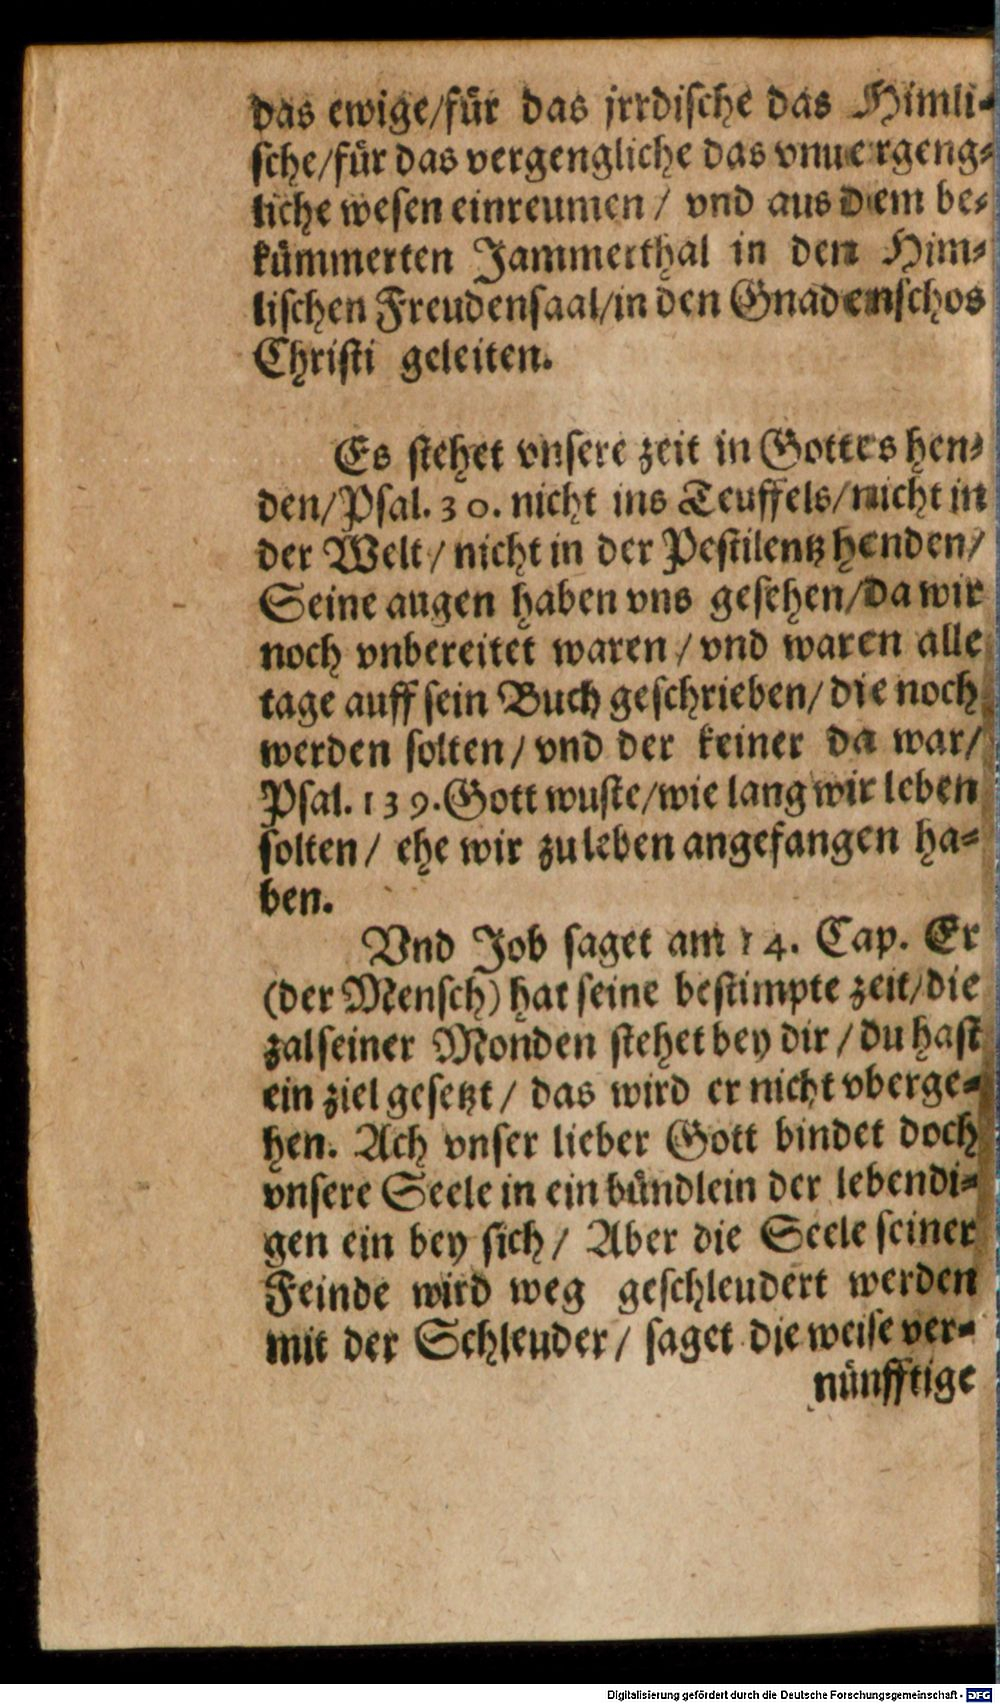 das ewige/für das jrrdische das Himli-
sche/für das vergengliche das vnuergeng-
liche wesen einreumen / vnd aus dem be-
kümmerten Jammerthal in den Him-
lischen Freudensaal/in den Gnadenschos
Christi geleiten.
Es stehet vnsere zeit in Gottes hen-
den/Psal. 30. nicht ins Teuffels/nicht in
der Welt / nicht in der Pestilentz henden/
Seine augen haben vns gesehen/da wir
noch vnbereitet waren / vnd waren alle
tage auff sein Buch geschrieben/ die noch
werden solten / vnd der keiner da war/
Psal. 139. Gott wuste/wie lang wir leben
solten / ehe wir zu leben angefangen ha-
ben.
Vnd Job saget am 14. Cap. Er
(der Mensch) hat seine bestimpte zeit/die
zal seiner Monden stehet bey dir / du hast
ein ziel gesetzt / das wird er nicht vberge-
hen. Ach vnser lieber Gott bindet doch
vnsere Seele in ein bündlein der lebendi-
gen ein bey sich / Aber die Seele seiner
Feinde wird weg geschleudert werden
mit der Schleuder / saget die weise ver-
nünfftige
Digitalisierung gefördert durch die Deutsche Forschungsgemeinschaft - DFG